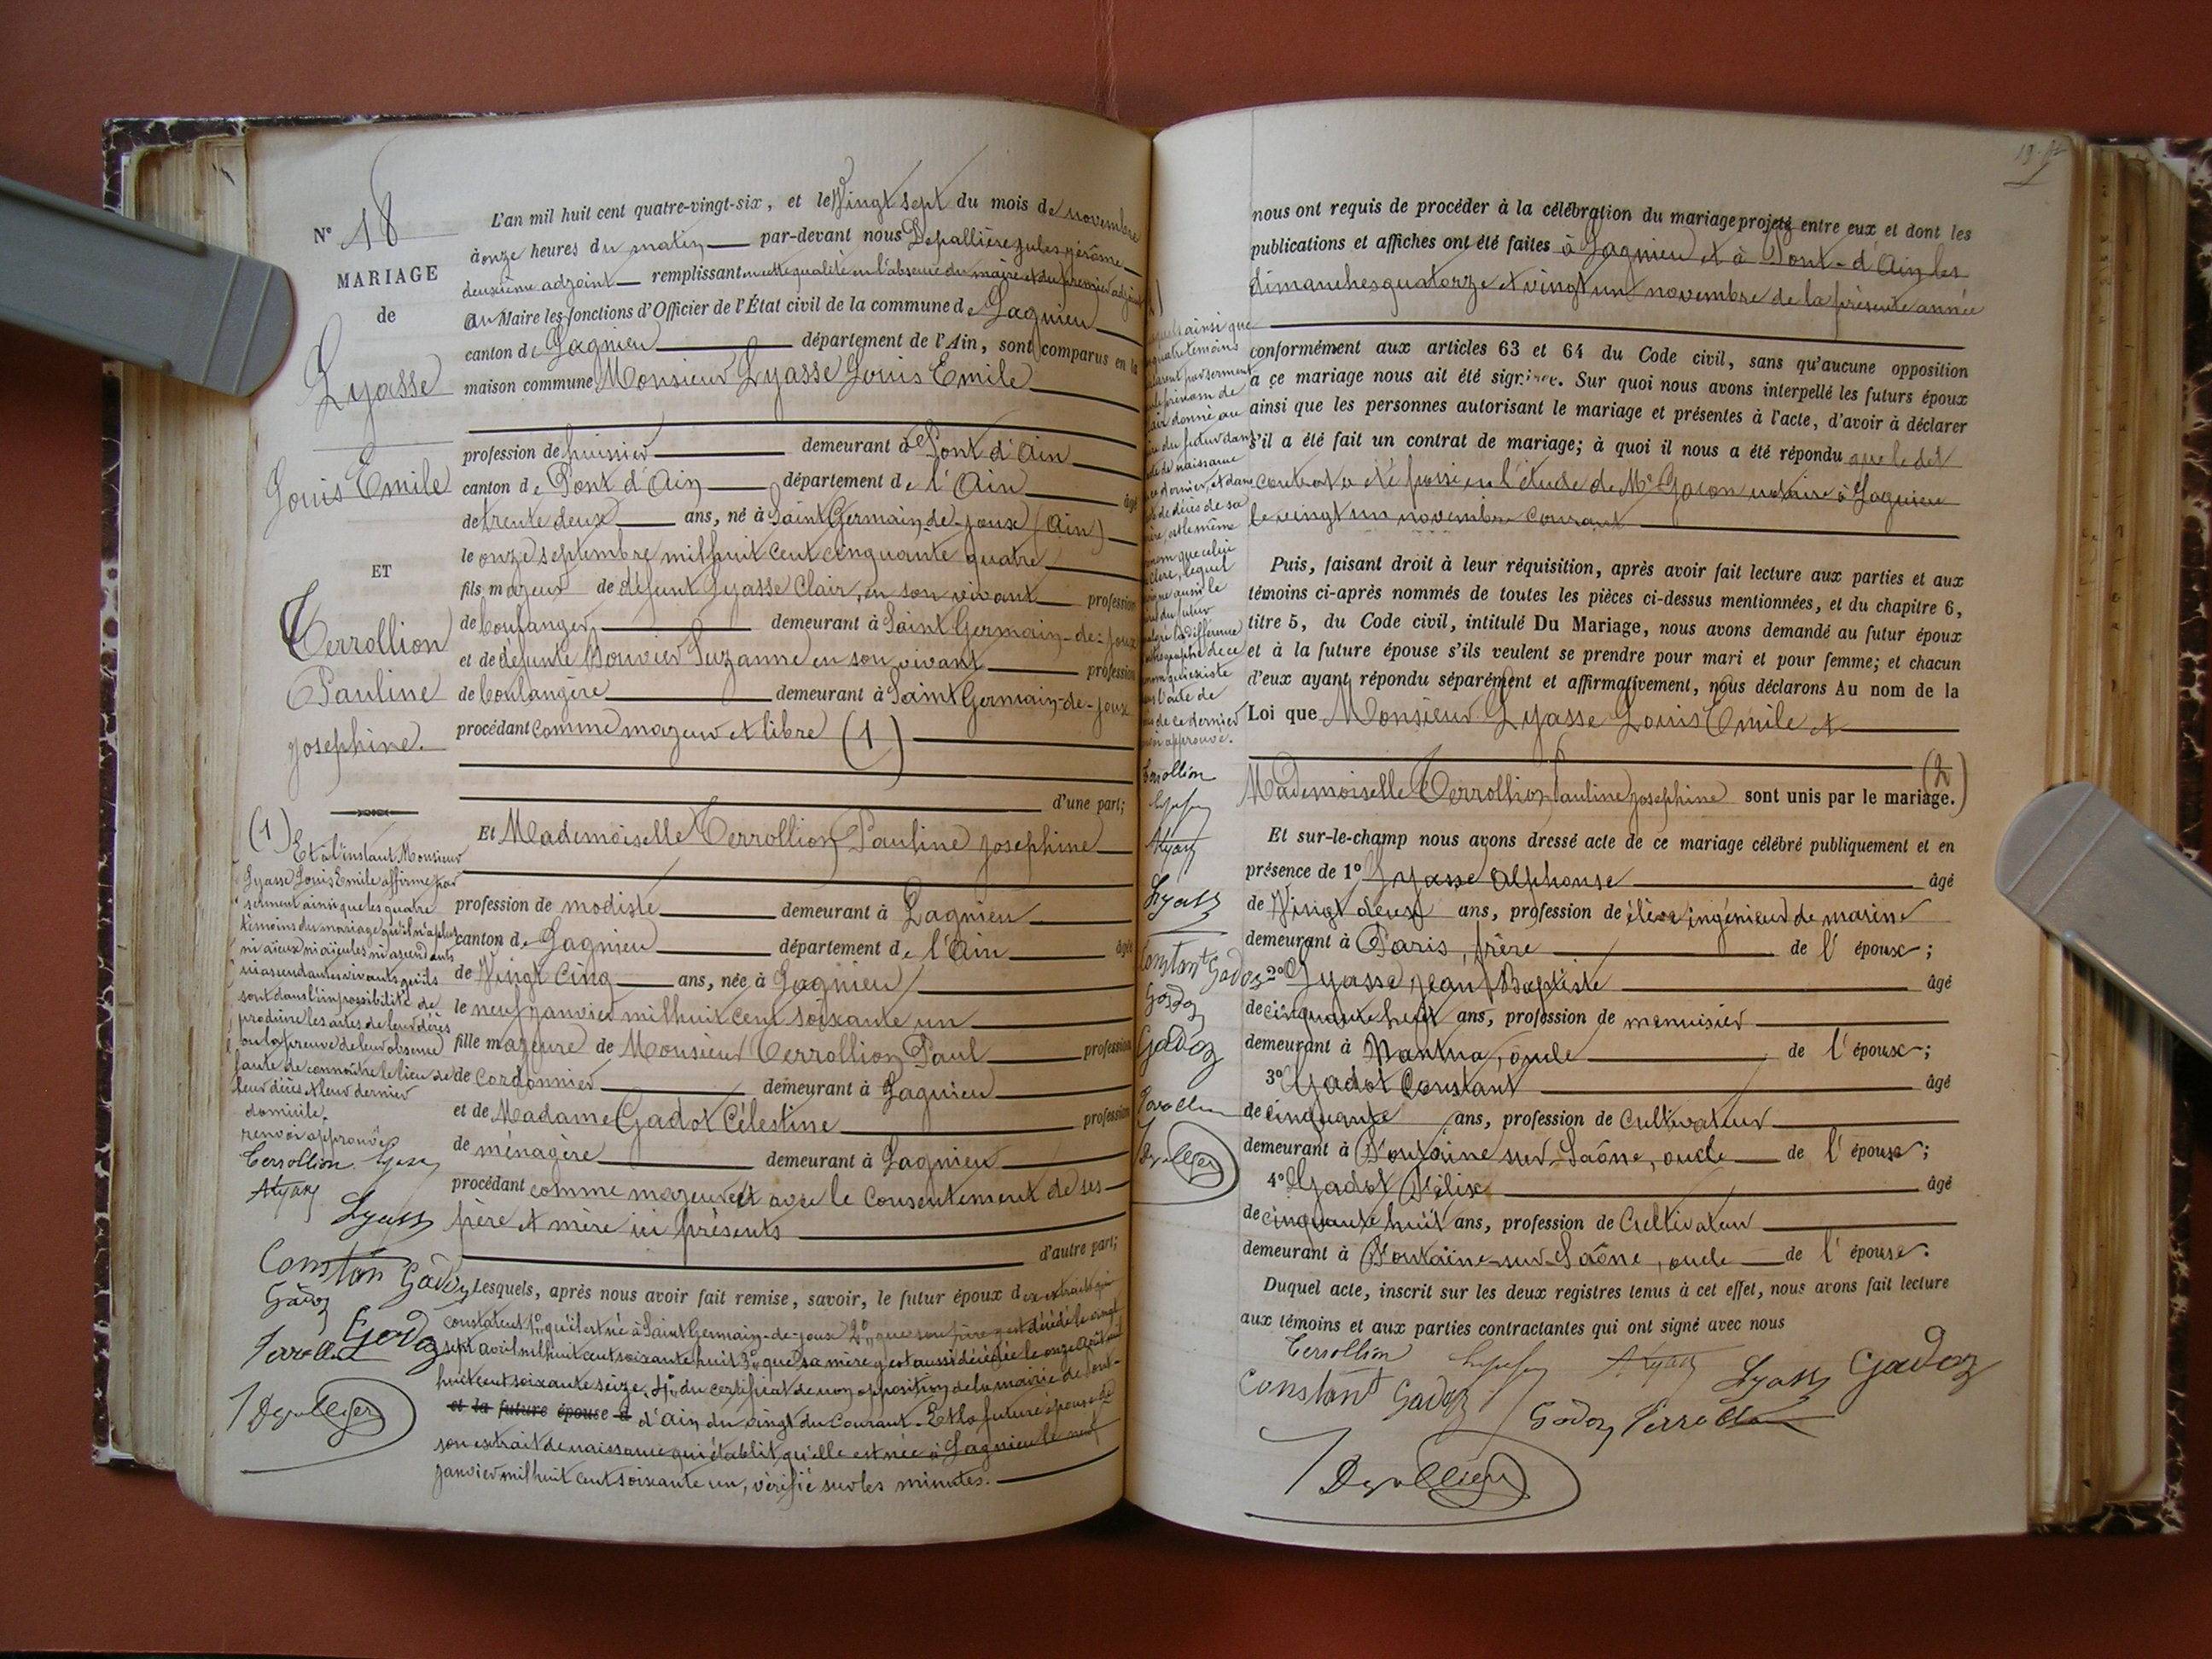 N° 18
MARIAGE
de
Lyasse
Louis Emile
ET
Terrollion
Pauline
Josephine.
L'an mil huit cent quatre-vingt-six, et le Vingt sept du mois de novembre
à onze heures du matin par-devant nous Depallière jules jérôme
deuxième adjoint remplissant en cette qualité en l'absence du maire et du premier adjoint
au Maire les fonctions d'Officier de l'État civil de la commune de Lagnieu
canton de Lagnieu département de l'Ain, sont comparus en la
maison commune Monsieur Lyasse Louis Emile
profession de huissier demeurant à Pont d'Ain
canton de Pont d'Ain département de l'Ain âgé
de trente deux ans, né à Saint Germain-de-joux (Ain)
le onze septembre mil huit cent cinquante quatre
fils majeur de défunt Lyasse Clair, en son vivant profession
de boulanger demeurant à Saint Germain-de-joux
et de défunte Bouvier Suzanne en son vivant profession
de boulangère demeurant à Saint Germain-de-joux
procédant comme majeur et libre (1)
d'une part;
Et Mademoiselle Terrollion Pauline Josephine
profession de modiste demeurant à Lagnieu
canton de Lagnieu département de l'Ain âgée
de Vingt cinq ans, née à Lagnieu
le neuf janvier mil huit cent soixante un
fille majeure de Monsieur Terrollion Paul profession
de cordonnier demeurant à Lagnieu
et de Madame Gadot Célestine profession
de ménagère demeurant à Lagnieu
procédant comme majeure et avec le consentement de ses
père et mère ici présents
d'autre part;
Lesquels, après nous avoir fait remise, savoir, le futur époux des extraits qui
constatent 1° qu'il est né à Saint Germain-de-joux 2° que son père y est décédé le vingt
sept avril mil huit cent soixante huit 3° que sa mère y est aussi décédée le onze août mil
huit cent soixante seize, 4° du certificat de non opposition de la mairie de Pont-
et la future épouse d d'ain, du vingt du courant. Et la future épouse de
son extrait de naissance qui établit qu'elle est née à Lagnieu le neuf
janvier mil huit cent soixante un, vérifié sur les minutes.
(1) Et à l'instant Monsieur
Lyasse Louis Emile affirme par
serment ainsi que les quatre
témoins du mariage qu'il n'a plus
ni aïeux ni aïeules ni ascendants
ni ascendantes vivants qu'ils
sont dans l'impossibilité de
produire les actes de leur décès
ou la preuve de leur absence
faute de connaître le lieu de
leur décès et leur dernier
domicile.
renvoi approuvé
Terrollion
Lyass
Constan Gadoz
Gadoz
Gadoz
Terrollion
Depallier
nous ont requis de procéder à la célébration du mariage projeté entre eux et dont les
publications et affiches ont été faites à Lagnieu et à Pont-d'Ain les
dimanches quatorze et vingt un novembre de la présente année
conformément aux articles 63 et 64 du Code civil, sans qu'aucune opposition
à ce mariage nous ait été signifiée. Sur quoi nous avons interpellé les futurs époux
ainsi que les personnes autorisant le mariage et présentes à l'acte, d'avoir à déclarer
s'il a été fait un contrat de mariage; à quoi il nous a été répondu que le dit
contrat a été passé en l'étude de Me Gacon notaire à Lagnieu
le vingt un novembre courant
Puis, faisant droit à leur réquisition, après avoir fait lecture aux parties et aux
témoins ci-après nommés de toutes les pièces ci-dessus mentionnées, et du chapitre 6,
titre 5, du Code civil, intitulé Du Mariage, nous avons demandé au futur époux
et à la future épouse s'ils veulent se prendre pour mari et pour femme; et chacun
d'eux ayant répondu séparément et affirmativement, nous déclarons Au nom de la
Loi que Monsieur Lyasse Louis Emile et
(2)
Mademoiselle Terrollion Pauline Josephine sont unis par le mariage.
Et sur-le-champ nous avons dressé acte de ce mariage célébré publiquement et en
présence de 1° Lyasse Alphonse âgé
de Vingt deux ans, profession de élève ingénieur de marine
demeurant à Paris, frère de l'époux;
2° Lyasse Jean Baptiste âgé
de cinquante huit ans, profession de menuisier
demeurant à Nantua, oncle de l'époux;
3° Gadot Constant âgé
de cinquante ans, profession de Cultivateur
demeurant à Fontaine sur Saône, oncle de l'épouse;
4° Gadot Félix âgé
de cinquante huit ans, profession de Cultivateur
demeurant à Fontaine-sur-Saône, oncle de l'épouse.
Duquel acte, inscrit sur les deux registres tenus à cet effet, nous avons fait lecture
aux témoins et aux parties contractantes qui ont signé avec nous
Terrollion Lyass Gadoz
Constant Gadoz Gadoz Terrollion
Depallier
ainsi que
quatre témoins
par serment
prénom de
donné au
du futur dans
de naissance
dernier, et dans
de décès de sa
est le même
que celui
lequel
aussi le
du futur
différence
orthographe de ce
qui existe
l'acte de
de ce dernier
approuvé.
Terrollion
Lyass
Constant Gadoz
Gadoz
Gadoz
Terrollion
Depallier